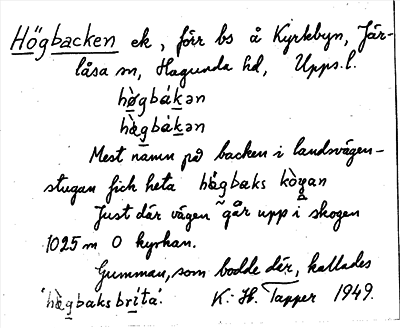 Högbacken ek, förr bs å Kyrkbyn, Jär-
låsa sn, Hagunda hd, Upps. l.
hø̀gbák̠ən
hæ̀gbák̠ən
Mest namn på backen i landsvägen-
stugan fick heta
Just där vägen går upp i skogen
1025 m O kyrkan.
Gumman, som bodde där, kallades
K. H. Tapper 1949.